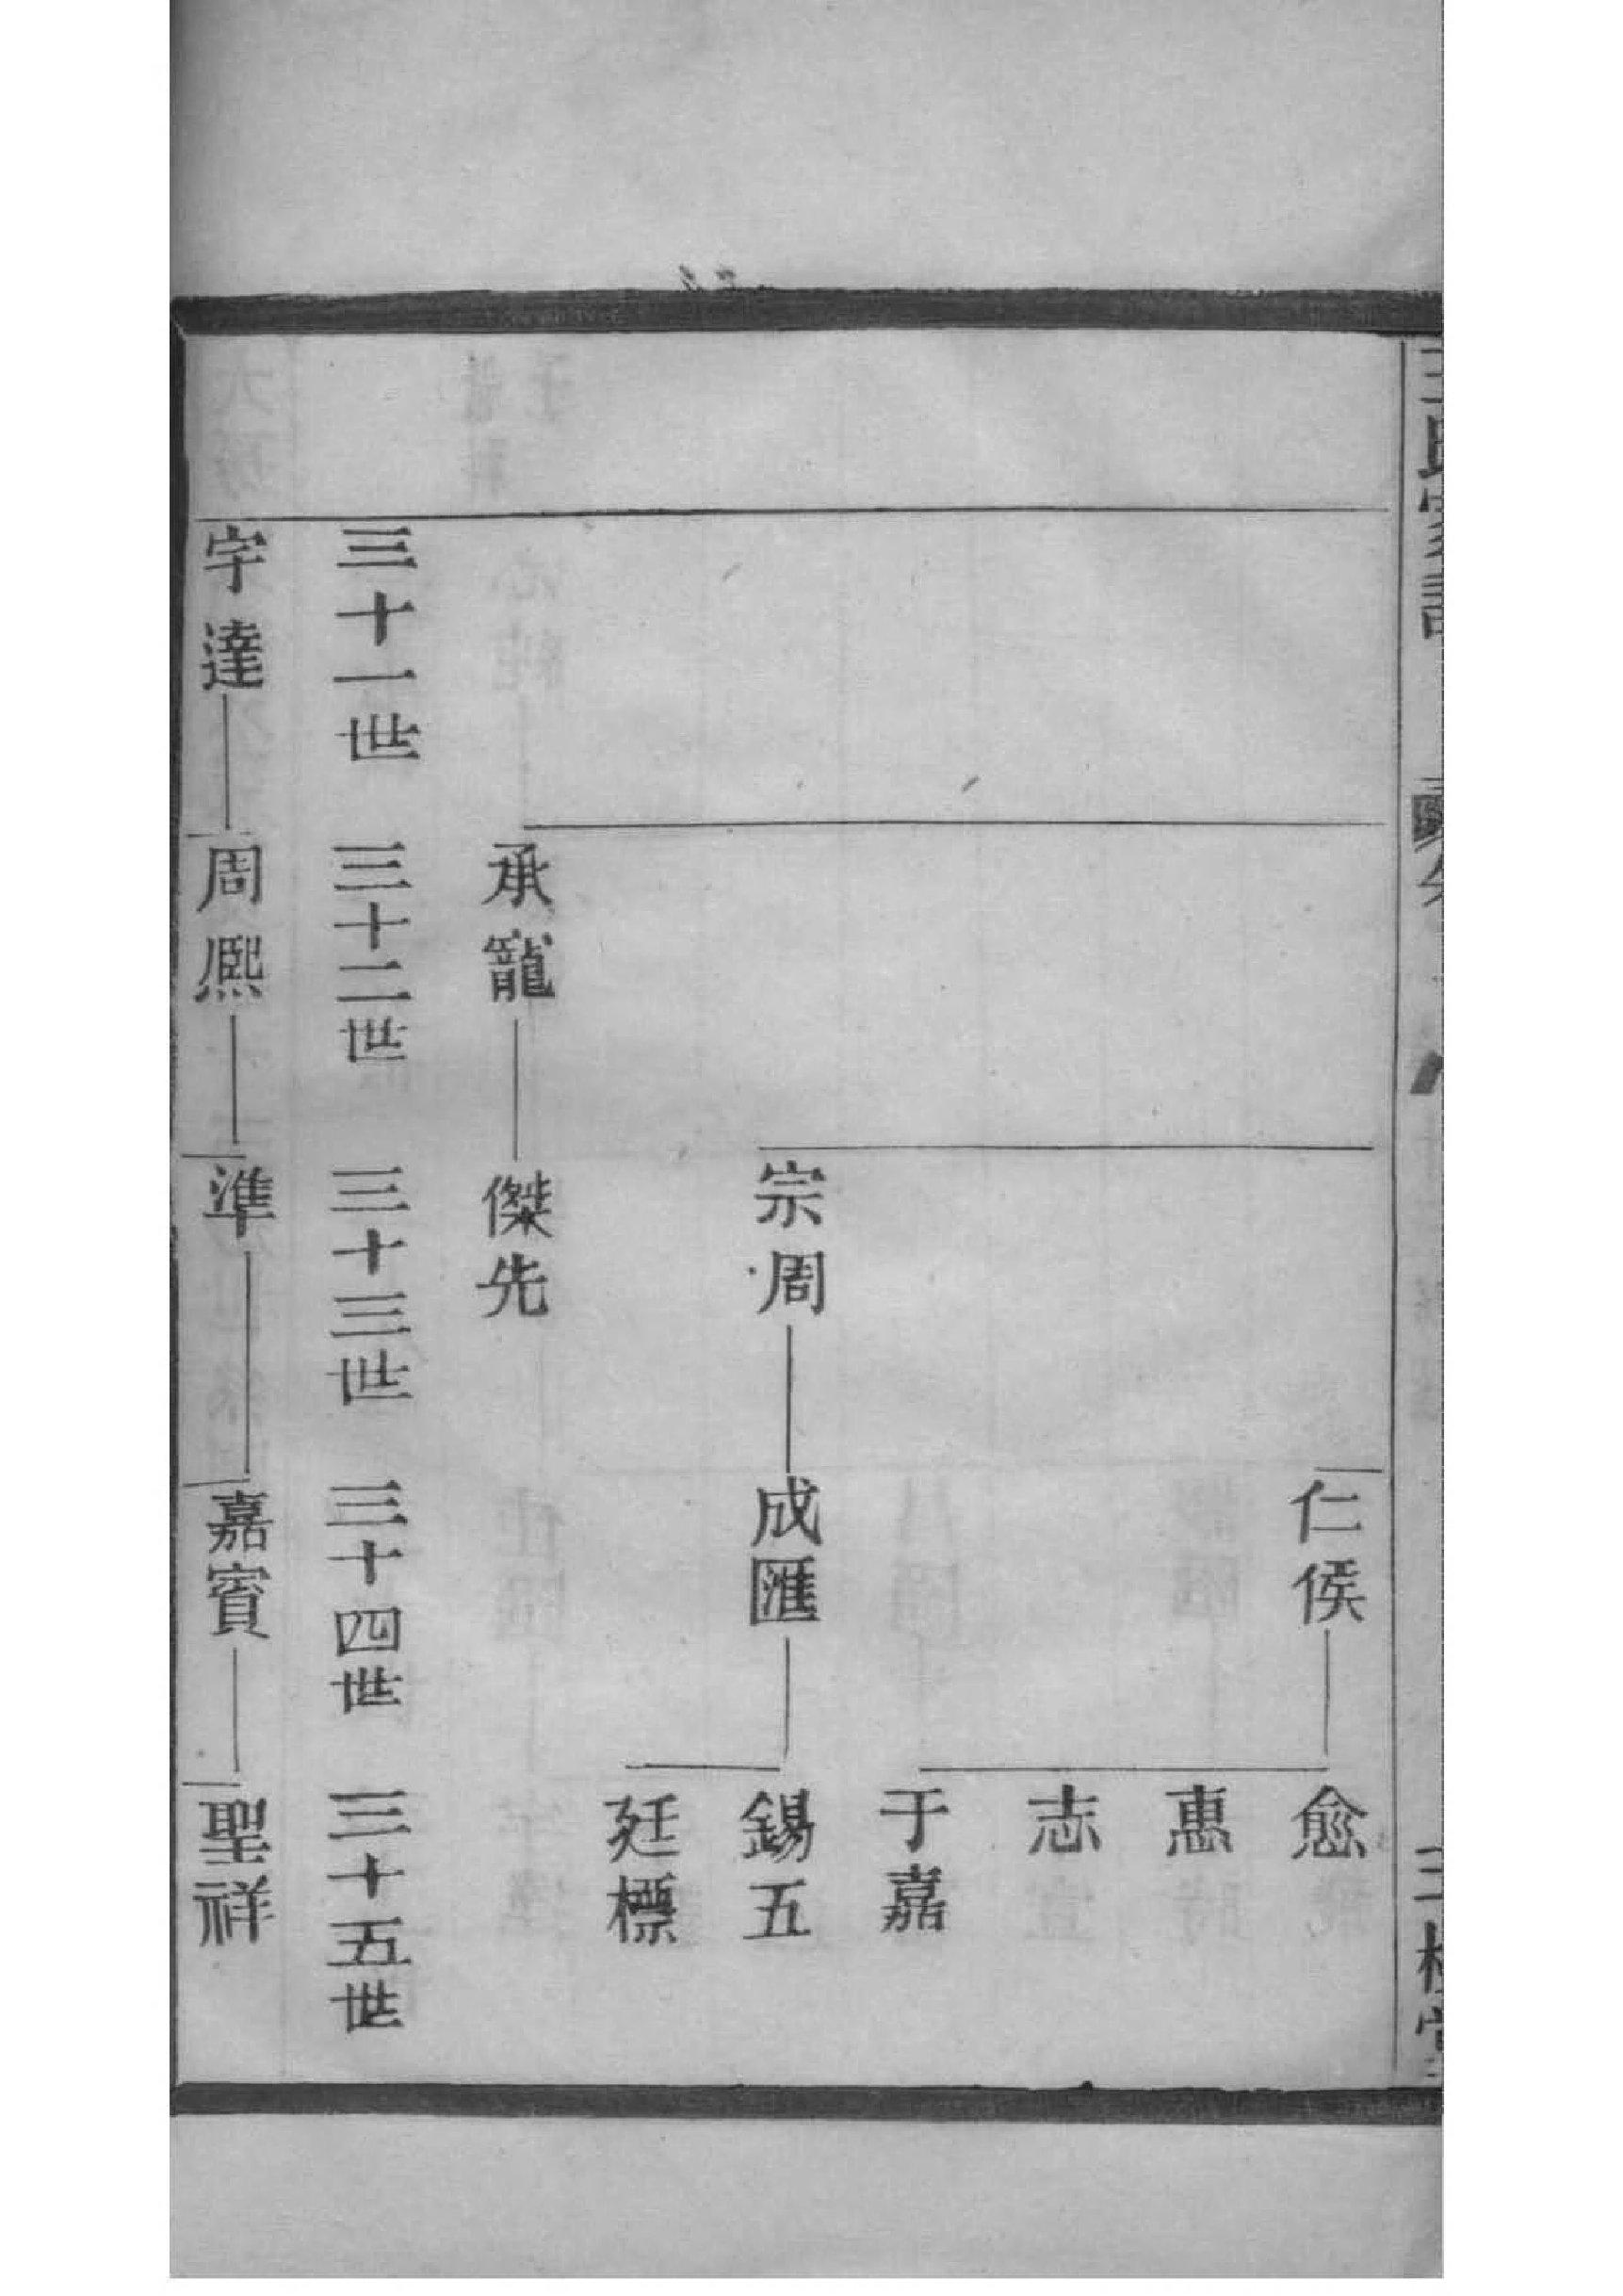 王氏家譜
三槐堂
仁侯
愈
惠
志
于嘉
宗周
成匯
錫五
廷標
承寵
傑先
三十一世
三十二世
三十三世
三十四世
三十五世
宇達
周熙
準
嘉賓
聖祥